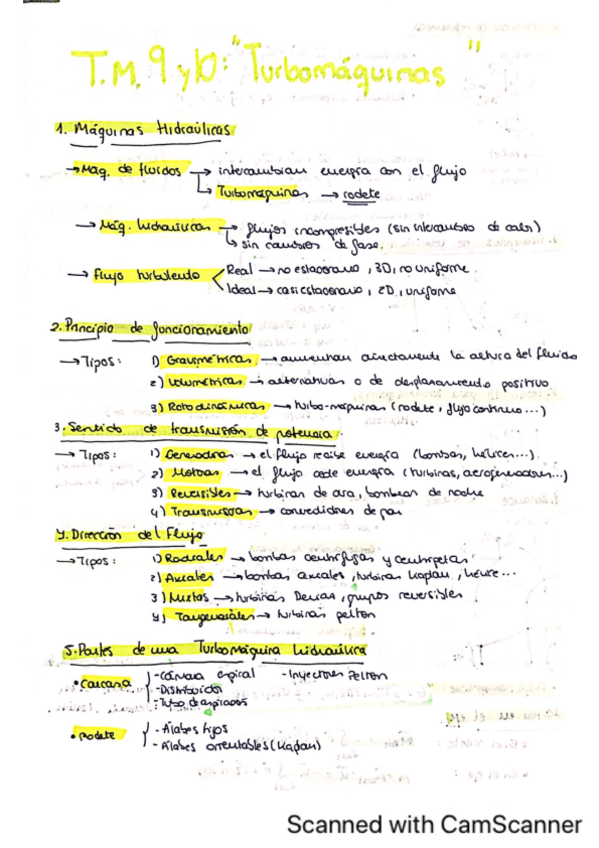 T.M. 9 y 10: "Turbomáquinas"
1. Máquinas Hidraúlicas
→ Maq. de fluidos → intercambian energía con el flujo
↳ Turbomaquinas → rodete
→ Máq. hidraulicas → flujos incompresibles (sin intercambio de calor)
↳ sin cambios de fase.
→ Flujo turbulento Real → no estacionario, 3D, no uniforme.
Ideal → casiestacionario, 2D, uniforme
2. Principio de funcionamiento
→ Tipos: 1) Gravimétricas → aumentan directamente la altura del fluido
2) Volumétricas → alternativas o de desplazamiento positivo
3) Rotodinámicas → turbo-máquinas (rodete, flujo continuo...)
3. Sentido de transmisión de potencia
→ Tipos: 1) Generadoras → el flujo recibe energía (bombas, hélices...)
2) Motoras → el flujo cede energía (turbinas, aerogeneradores...)
3) Reversibles → turbinan de dia, bombean de noche
4) Transmisoras → convertidores de par
4. Dirección del Flujo
→ Tipos: 1) Radiales → bombas centrífugas y centrípetas
2) Axiales → bombas axiales, turbinas Kaplan, hélice...
3) Mixtas → turbinas Deriaz, grupos reversibles
4) Tangenciales → turbinas pelton
5. Partes de una Turbomáquina hidraúlica
• Carcasa - Cámara espiral - Inyectores Pelton
- Distribuidor
- Tubo de aspiración
• Rodete - Álabes fijos
- Álabes orientables (Kaplan)
Scanned with CamScanner